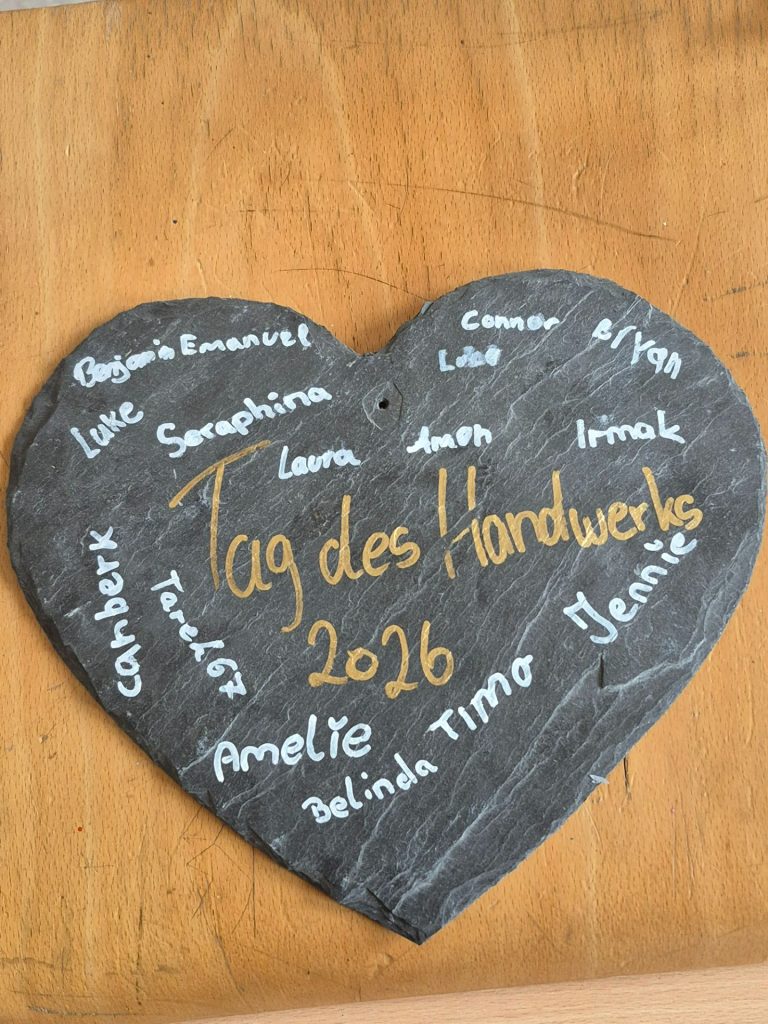 Connor
Bryan
Benjamin Emanuel
Luke
Seraphina
Laura
Amon
Irmak
Tag des Handwerks
2026
Canberk
Tarek67
Jennie
Amelie
Timo
Belinda